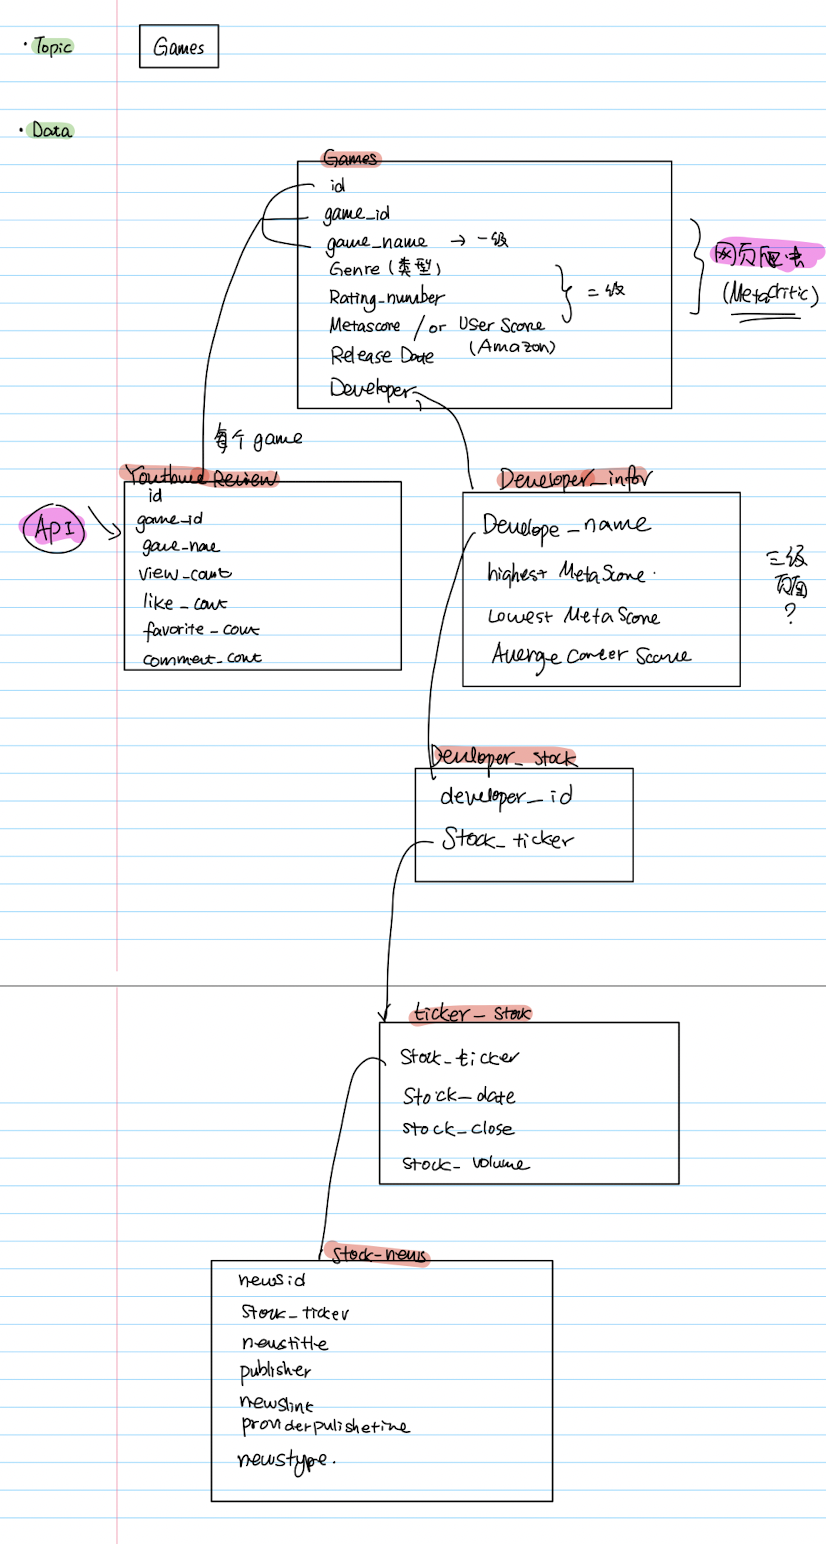 · Topic
Games
· Data
Games
id
game_id
game_name → 一级
Genre (类型)
Rating_number
} 二级
Metascore / or User Score
(Amazon)
Release Date
Developer
网页爬虫
(Metacritic)
每个 game
Youtbue Review
API
id
game_id
game_name
view_count
like_cout
favorite_cout
comment_cout
Developer_infor
Develope_name
highest MetaScore.
Lowest MetaScore
Average Career Score
三级
页面
?
Developer_stock
developer_id
Stock_ticker
ticker_stock
Stock_ticker
Stock_date
stock_close
stock_volume
Stock_news
newsid
Stock_ticker
newstitle
publisher
newslink
providerpulishetime
newstype.